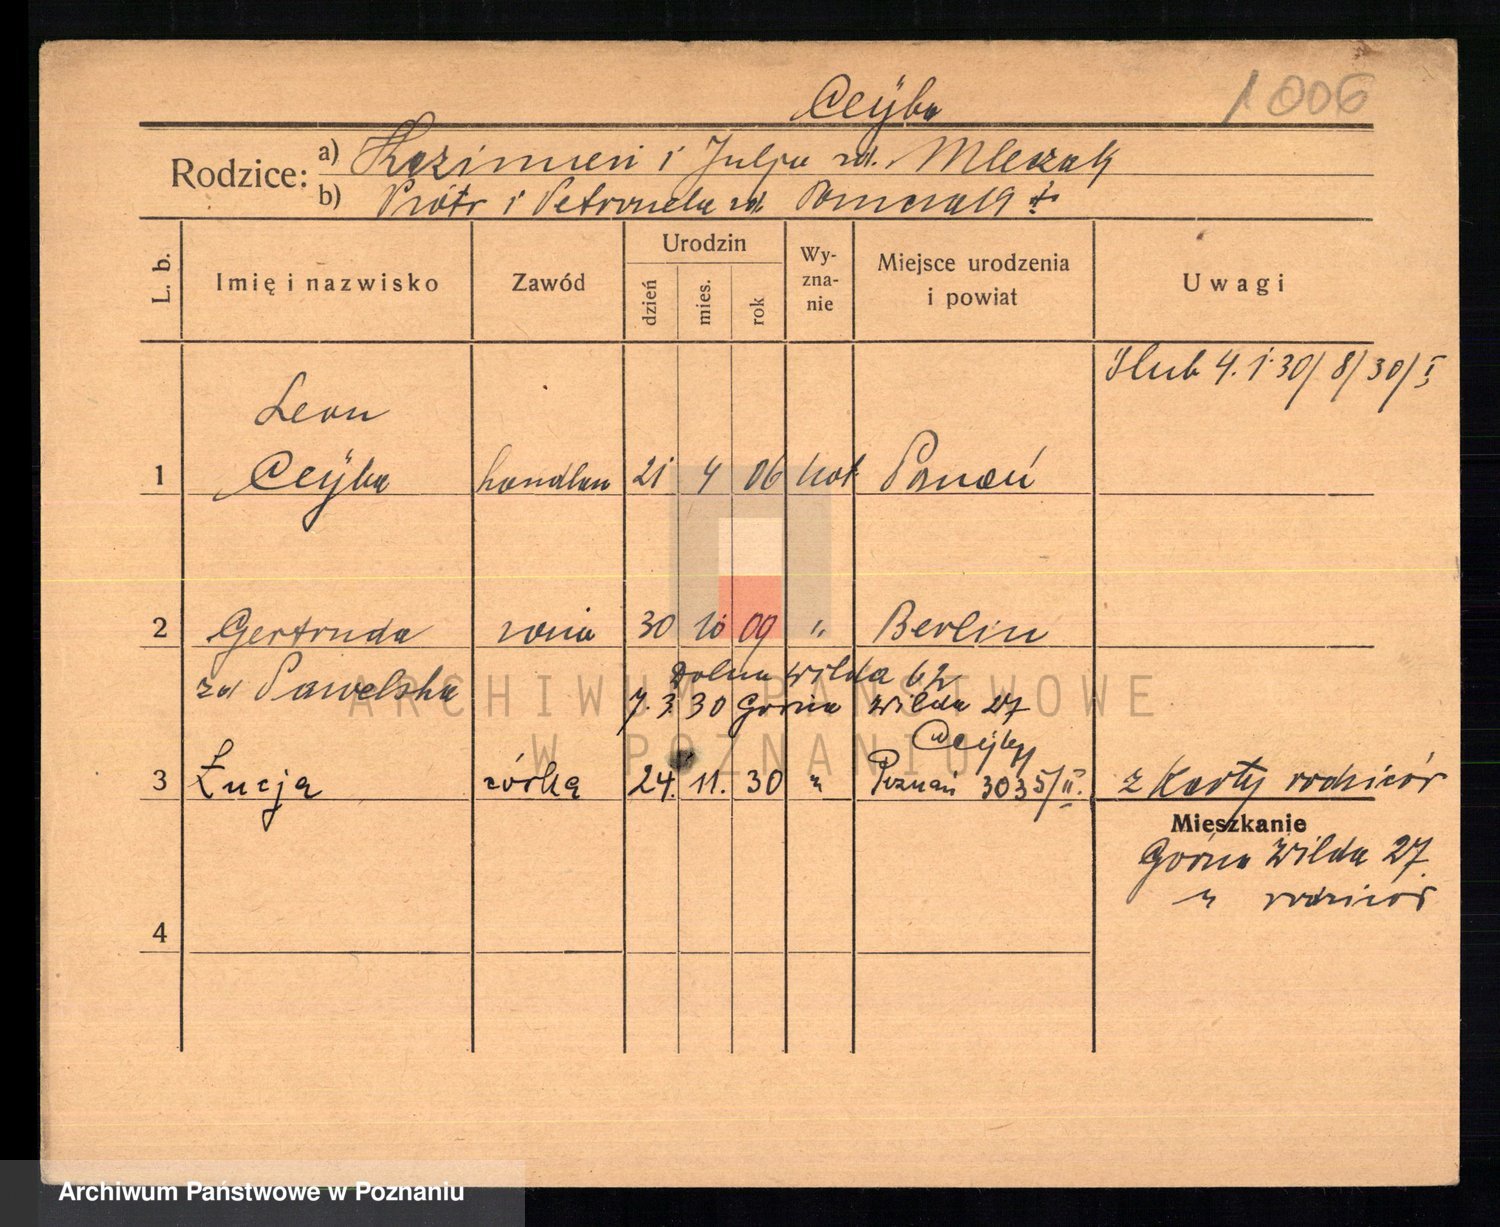 1006
Ceÿba
Rodzice: a) Kazimierz i Julja zd. Mleczak
b) Piotr i Petronela zd.
L. b. Imię i nazwisko Zawód Urodzin dzień mies. rok Wy-zna-nie Miejsce urodzenia i powiat Uwagi
Ślub 4. 1. 30/ 8/30/I
Leon
1 Ceÿba handlarz 21 4 06 kat. Poznań
2 Gertruda żona 30 10 09 " Berlin
zd Pawelska
Dolna Wilda 62
7. 3. 30 Górna Wilda 27
3 Łucja córka 24. 11. 30 " Poznań 3035/II. z Karty rodziców
Mieszkanie
Górna Wilda 27
u rodziców
4
ARCHIWUM PAŃSTWOWE
W POZNANIU
Archiwum Państwowe w Poznaniu